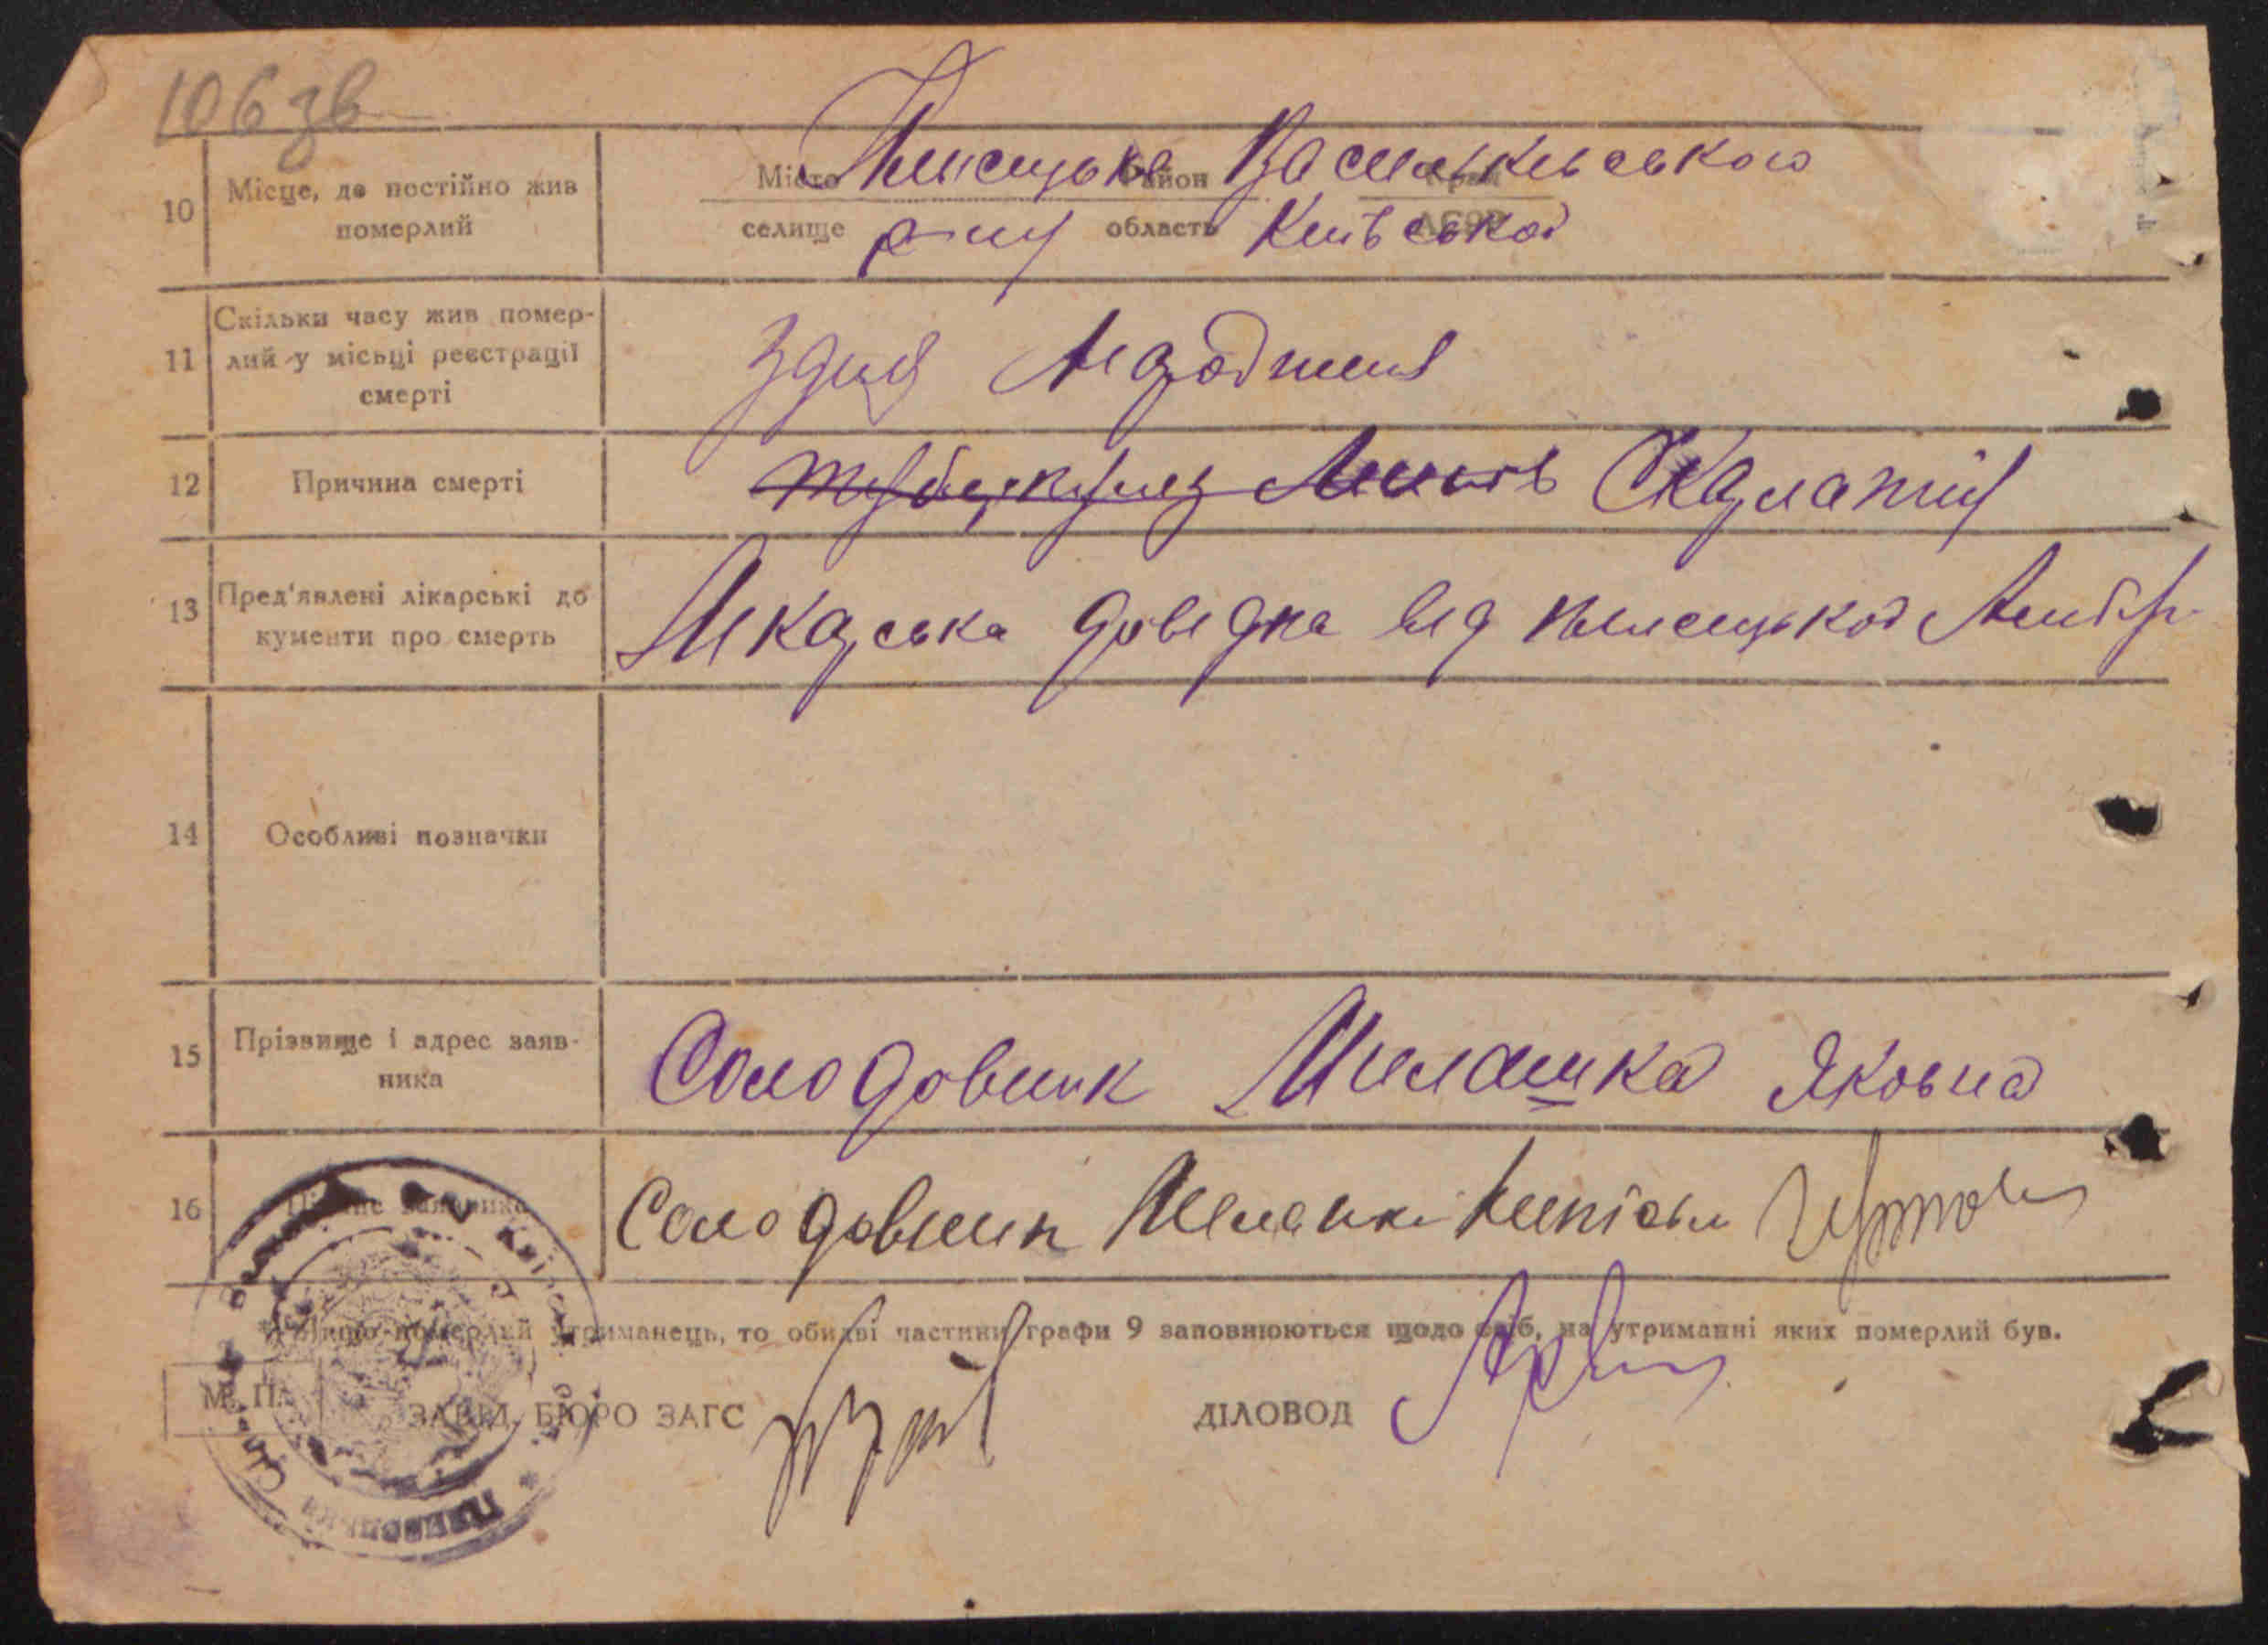 106 зв
10 Місце, де постійно жив померлий
Місто Район Васильківського
селище р-ну область Київської
11 Скільки часу жив помер-
лий у місьці реєстрації
смерті
З дня народження
12 Причина смерті
туберкульоз легень Скарлатина
13 Пред'явлені лікарські до
кументи про смерть
Лікарська довідка від Плисецької Амбул.
14 Особливі позначки
15 Прізвище і адрес заяв-
ника
Солодовник Мелашка Яковна
16 Підпис заявника
Солодовник
Якщо померлий утриманець, то обидві частини графи 9 заповнюються щодо осіб, на утриманні яких померлий був.
М. П.
ЗАВІД. БЮРО ЗАГС
ДІЛОВОД